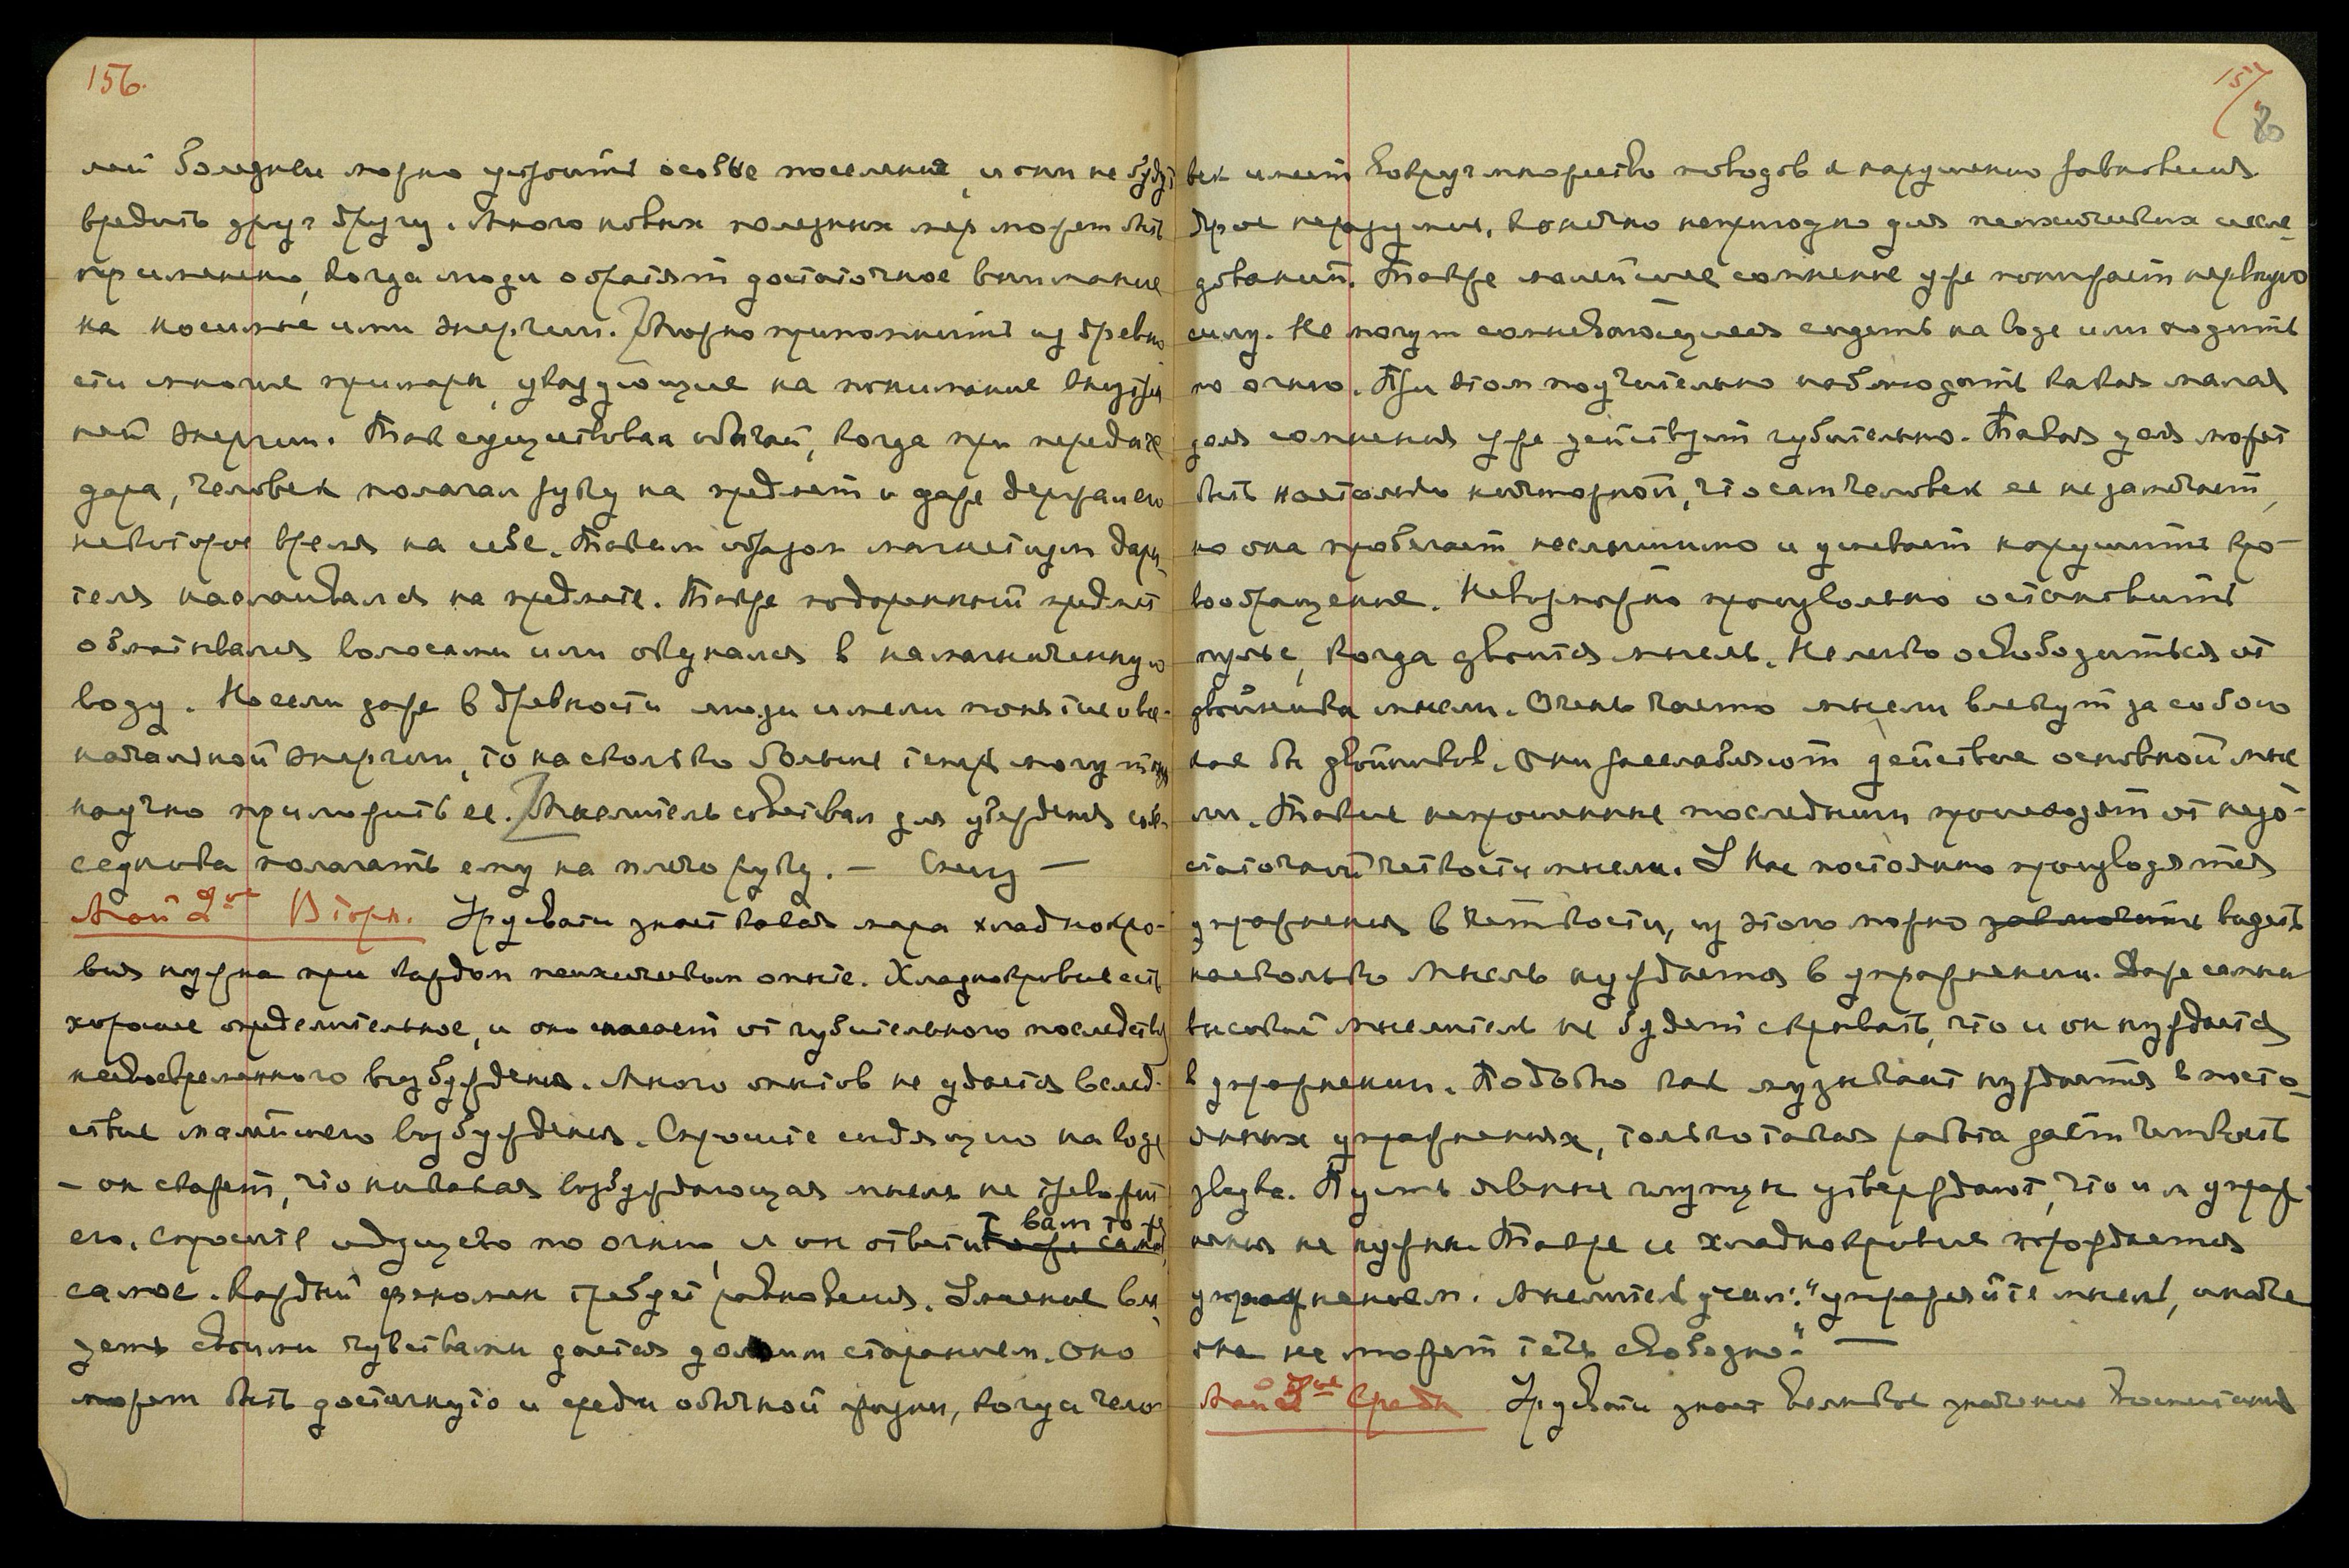 156.
лей болезней можно устроить особые поселения, и они не будут
вредить друг другу. Много новых полезных мер может быть
применено, когда люди обратят достаточное внимание
на носимые ими энергии. Можно припомнить из древно
сти многие примеры, указующие на понимание внутрен
ней энергии. Так существовал обычай, когда при передаче
дара, человек полагал руку на предмет и даже держал его
некоторое время на себе. Таким образом магнетизм дари-
теля наслаивался на предмете. Также подаренный предмет
обматывался волосами или окунался в намагниченную
воду. Но если даже в древности люди имели понятие о все-
начальной энергии, то насколько больше теперь могут они
научно приложить ее. Мыслитель советовал для убеждения собе-
седника полагать ему на плечо руку. —
Май 2ое Вторн. Урусвати знает какая мера хладнокро-
вия нужна при каждом психическом опыте. Хладнокровие есть
хорошее определительное, и оно спасает от губительного последствия
несвоевременного возбуждения. Много опытов не удается вслед-
ствие малейшего возбуждения. Спросите сидящего на воде
– он скажет, что никакая возбуждающая мысль не тревожит
его. Спросите идущего по огню, и он ответит вам то же
самое. Каждый феномен требует равновесия. Умение вла
деть своими чувствами дается долгим старанием. Оно
может быть достигнуто и среди обычной жизни, когда чело-
157
8
век имеет вокруг множество поводов к нарушению равновесия
Яркое неразумие, конечно непригодно для психических иссле-
дований. Также малейшее сомнение уже попирает нервную
силу. Не могут сомневающиеся сидеть на воде или ходить
по огню. При этом поучительно наблюдать какая малая
доля сомнения уже действует губительно. Такая доля может
быть настолько ничтожной, что сам человек ее не замечает,
но она пробегает неслышимо и успевает нарушить кро-
вообращение. Невозможно произвольно остановить
пульс, когда двоится мысль. Не легко освободиться от
двойника мысли. Очень часто мысли влекут за собою
как бы двойников. Они расслабляют действие основной мыс
ли. Такие непрошенные последыши происходят от недо-
статочной четкости мысли. У Нас постоянно производятся
упражнения в четкости, из этого можно заключить видеть
насколько мысль нуждается в упражнении. Даже самый
высокий мыслитель не будет скрывать, что и он нуждается
в упражнении. Подобно как музыкант нуждается в посто-
янных упражнениях, только такая работа дает четкость
звука. Пусть явные глупцы утверждают, что им упраж-
нения не нужны. Также и хладнокровие порождается
упражнением. Мыслитель учил: "упражняйте мысль, иначе
она не может течь свободно." —
Май 3ое Среда Урусвати знает великое значение